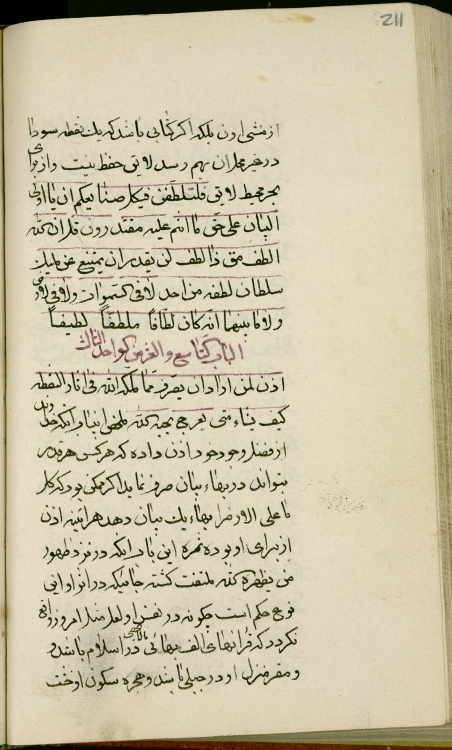 211
از منشی اون بلکه اگر کتابی باشد که یک نقطه سودا
در خیر محلران بهم رسد لایق حفظ نیست و از برای
بحر محیط لایق فلتلطفن فیکل صنایعکم ان یا اولی
البیان علی حق ما انتم علیه مقتدرون قل الله
الطف فوق ذا لطف لن یقدر ان یمتنع عن ملیک
سلطان لطفه من احد لا فی السموات ولا فی الارض
ولا ما بینهما انه کان لطافا ملطفا لطیفا
الباب التاسع و العشر من الواحد الثالث
اذن لمن اراد ان یصرف مما ملکه الله فی اثار النقطه
کیف یشاء متی بعرج بهجة الله ملخص این باب انکه خداوند
از فضل وجود خود اذن داده که هر کس هر قدر
بتواند در بهاء بیان صرف نماید اگر ممکن بود که کل
ما علی الارض را بهاء یک بیان دهد هر اینه اذن
از برای او بوده ثمره این باب انکه در نزد ظهور
من یظهره الله ملتفت گشته جائیکه در اثر او این
نوع حکم است چگونه در نفس او لعل مثل امروز واقع
نگردد که قرانهای الف بهائی بالاتر در اسلام باشد و
و مقر منزل او در جبلی باشد و حجره سکون او خشت